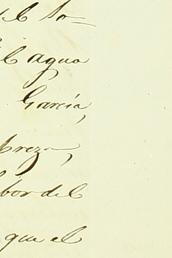 el So-
el agua
García,
breza,
bor del
que el